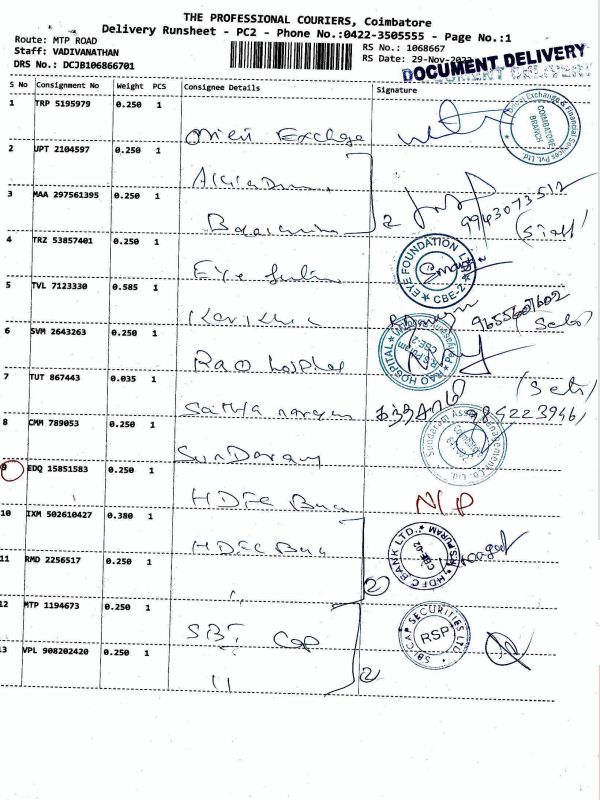 THE PROFESSIONAL COURIERS, Coimbatore
Delivery Runsheet - PC2 - Phone No.:0422-3505555 - Page No.:1
Route: MTP ROAD
RS No.: 1068667
Staff: VADIVANATHAN
RS Date: 29-Nov-2022
DRS No.: DCJB106866701
DOCUMENT DELIVERY
S No Consignment No Weight PCS Consignee Details Signature
1 TRP 5195979 0.250 1
Orient Exchge
COIMBATORE BRANCH
2 UPT 2104597 0.250 1
3 MAA 297561395 0.250 1
2
9943073512
4 TRZ 53857401 0.250 1
EYE FOUNDATION
CBE-2
Eye
5 TVL 7123330 0.585 1
9655601602
6 SVM 2643263 0.250 1
Rao hospital
RAO HOSPITAL
CBE-2
7 TUT 867443 0.035 1
Sathya narayan
984223946
8 CMM 789053 0.250 1
Sundaram Asset Management Co. Ltd.
SunDaram
9 EDQ 15851583 0.250 1
HDFC
N/P
10 IXM 502610427 0.380 1
HDFC
HDFC BANK LTD.,
R.S.PURAM
CBE-02
11 RMD 2256517 0.250 1
"
2
12 MTP 1194673 0.250 1
SBI Cap
SBICAP SECURITIES LTD
RSP
13 VPL 908202420 0.250 1
"
2